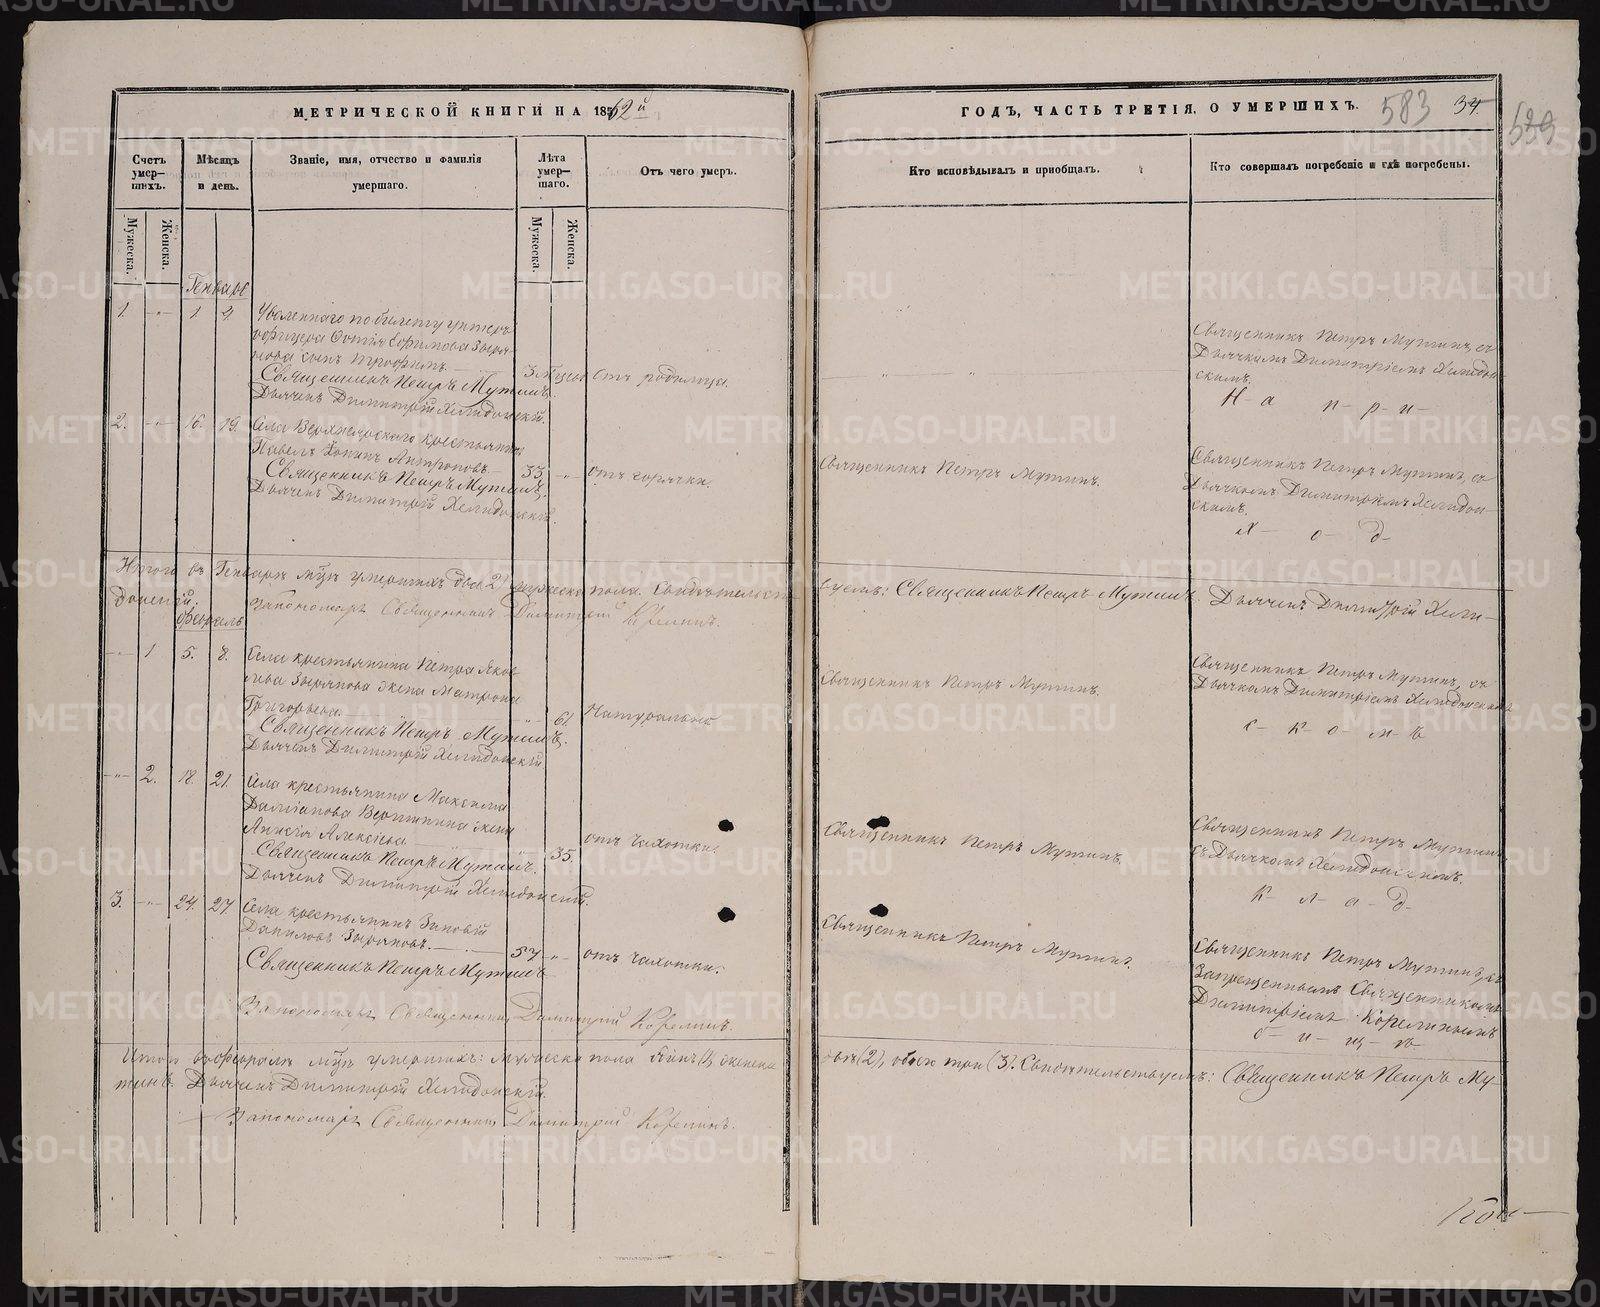 МЕТРИЧЕСКОЙ КНИГИ НА 1862й
ГОДЪ, ЧАСТЬ ТРЕТІЯ, О УМЕРШИХЪ.
583
34.
Счетъ умер-шихъ.
Мѣсяцъ и день.
Званіе, имя, отчество и фамилія умершаго.
Лѣта умер-шаго.
Отъ чего умеръ.
Кто исповѣдывалъ и приобщалъ.
Кто совершалъ погребеніе и гдѣ погребены.
Мужеска.
Женска.
Мужеска.
Женска.
Генварь
1. -"- 1 4.
Уволеннаго по билету унтеръ-
офицера Ефимова Зыря-
нова сынъ Трофимъ.
Священникъ Петръ Мутинъ.
Дьячекъ Димитрій Хелидонскій.
Отъ родимца.
Священникъ Петръ Мутинъ, съ
Дьячкомъ Димитріемъ Хелидон-
скимъ.
Н- а п- р- и-
2. -"- 16. 19.
Села крестьянинъ
Павелъ Антроповъ
Священникъ Петръ Мутинъ.
Дьячекъ Димитрій Хелидонскій.
33. -"-
отъ горячки.
Священникъ Петръ Мутинъ.
Священникъ Петръ Мутинъ, съ
Дьячкомъ Димитріемъ Хелидон-
скимъ.
х- о- д-
Итого въ Генварѣ мцѣ умершихъ два 2) мужеска пола. Свидѣтельст-
вуемъ: Священникъ Петръ Мутинъ. Дьячекъ Димитрій Хели-
донскій.
Запономаря Священникъ Димитрій Корелинъ.
Февраль
-"- 1 5. 8.
Села крестьянина Петра Яков-
лева Зырянова жена Матрона
Григорьева.
Священникъ Петръ Мутинъ.
Дьячекъ Димитрій Хелидонскій
-"- 61.
Натурально
Священникъ Петръ Мутинъ.
Священникъ Петръ Мутинъ, съ
Дьячкомъ Димитріемъ Хелидонскимъ
с- к- о- м- ъ
-"- 2. 18. 21.
Села крестьянина Максима
Даміанова Вершинина жена
Анисія Алексѣева
Священникъ Петръ Мутинъ.
Дьячекъ Димитрій Хелидонскій.
35.
отъ чахотки.
Священникъ Петръ Мутинъ.
Священникъ Петръ Мутинъ
съ Дьячкомъ Хелидонскимъ.
к- л- а- д-
3. -"- 24. 27
Села крестьянинъ Зиновій
Даниловъ Зыряновъ.
Священникъ Петръ Мутинъ
57 -"-
отъ чахотки.
Священникъ Петръ Мутинъ.
Священникъ Петръ Мутинъ, съ
Запрещеннымъ Священникомъ
Димитріемъ Корелинымъ
б- и- щ- ѣ-
Запономаря Священникъ Димитрій Корелинъ.
Итого въ Февралѣ мцѣ умершихъ: мужеска пола одинъ (1), женска
двѣ (2), обоего три (3). Свидѣтельствуемъ: Священникъ Петръ Му-
тинъ. Дьячекъ Димитрій Хелидонскій.
Запономаря Священникъ Димитрій Корелинъ.
METRIKI.GASO-URAL.RU